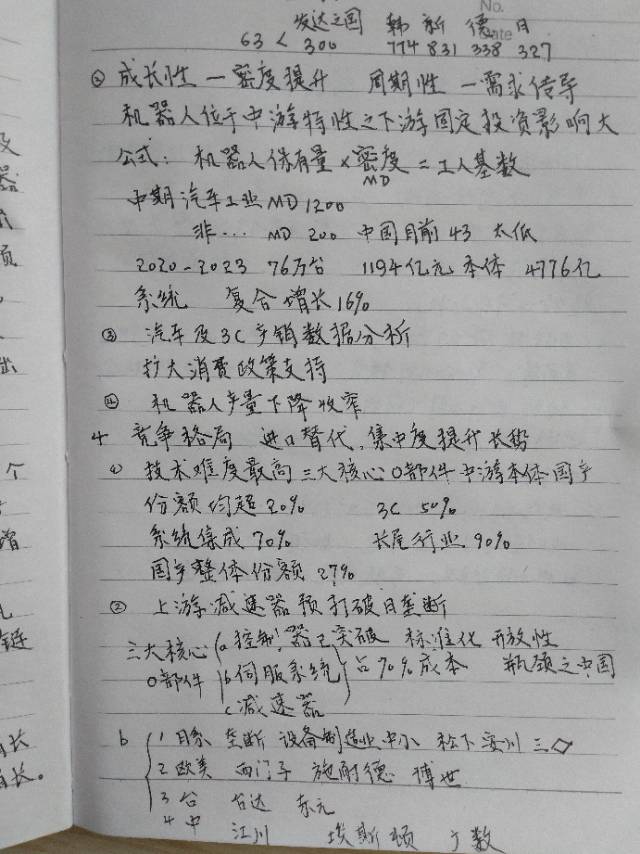 No.
Date
发达之国 韩 新 德 日
63 < 300 774 831 338 327
② 成长性 — 密度提升 周期性 — 需求传导
机器人位于中游特性之下游固定投资影响大
公式: 机器人保有量 × 密度 = 工人基数
MD
中期汽车工业 MD 1200
非... MD 200 中国目前 43 太低
2020-2023 76万台 1194亿元 本体 4776亿
系统 复合增长16%
③ 汽车及3C产销数据分析
扩大消费政策支持
④ 机器人产量下降收窄
4 竞争格局 进口替代,集中度提升长势
① 技术难度最高三大核心0部件中游本体国产
份额均超20% 3C 50%
系统集成70% 长尾行业90%
国产整体份额27%
② 上游减速器预打破日垄断
三大核心 a 控制器已突破 标准化 开放性
0部件 b 伺服系统 占70%成本 瓶颈之中国
c 减速器
b 1 日系 垄断 设备制造业中小 松下 安川 三◇
2 欧美 西门子 施耐德 博世
3 台 台达 东元
4 中 江川 埃斯顿 广数